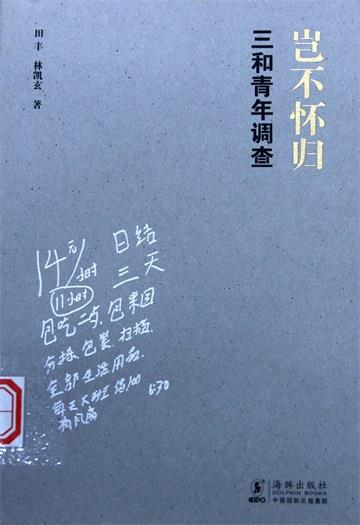 岂不怀归
三和青年调查
田丰 林凯玄 著
14元/小时
11小时
日结
三天
包吃二点、包来回
分拣、包装、扫描、
全部生活用品、
6:30
海豚出版社
DOLPHIN BOOKS
CIPG 中国国际出版集团